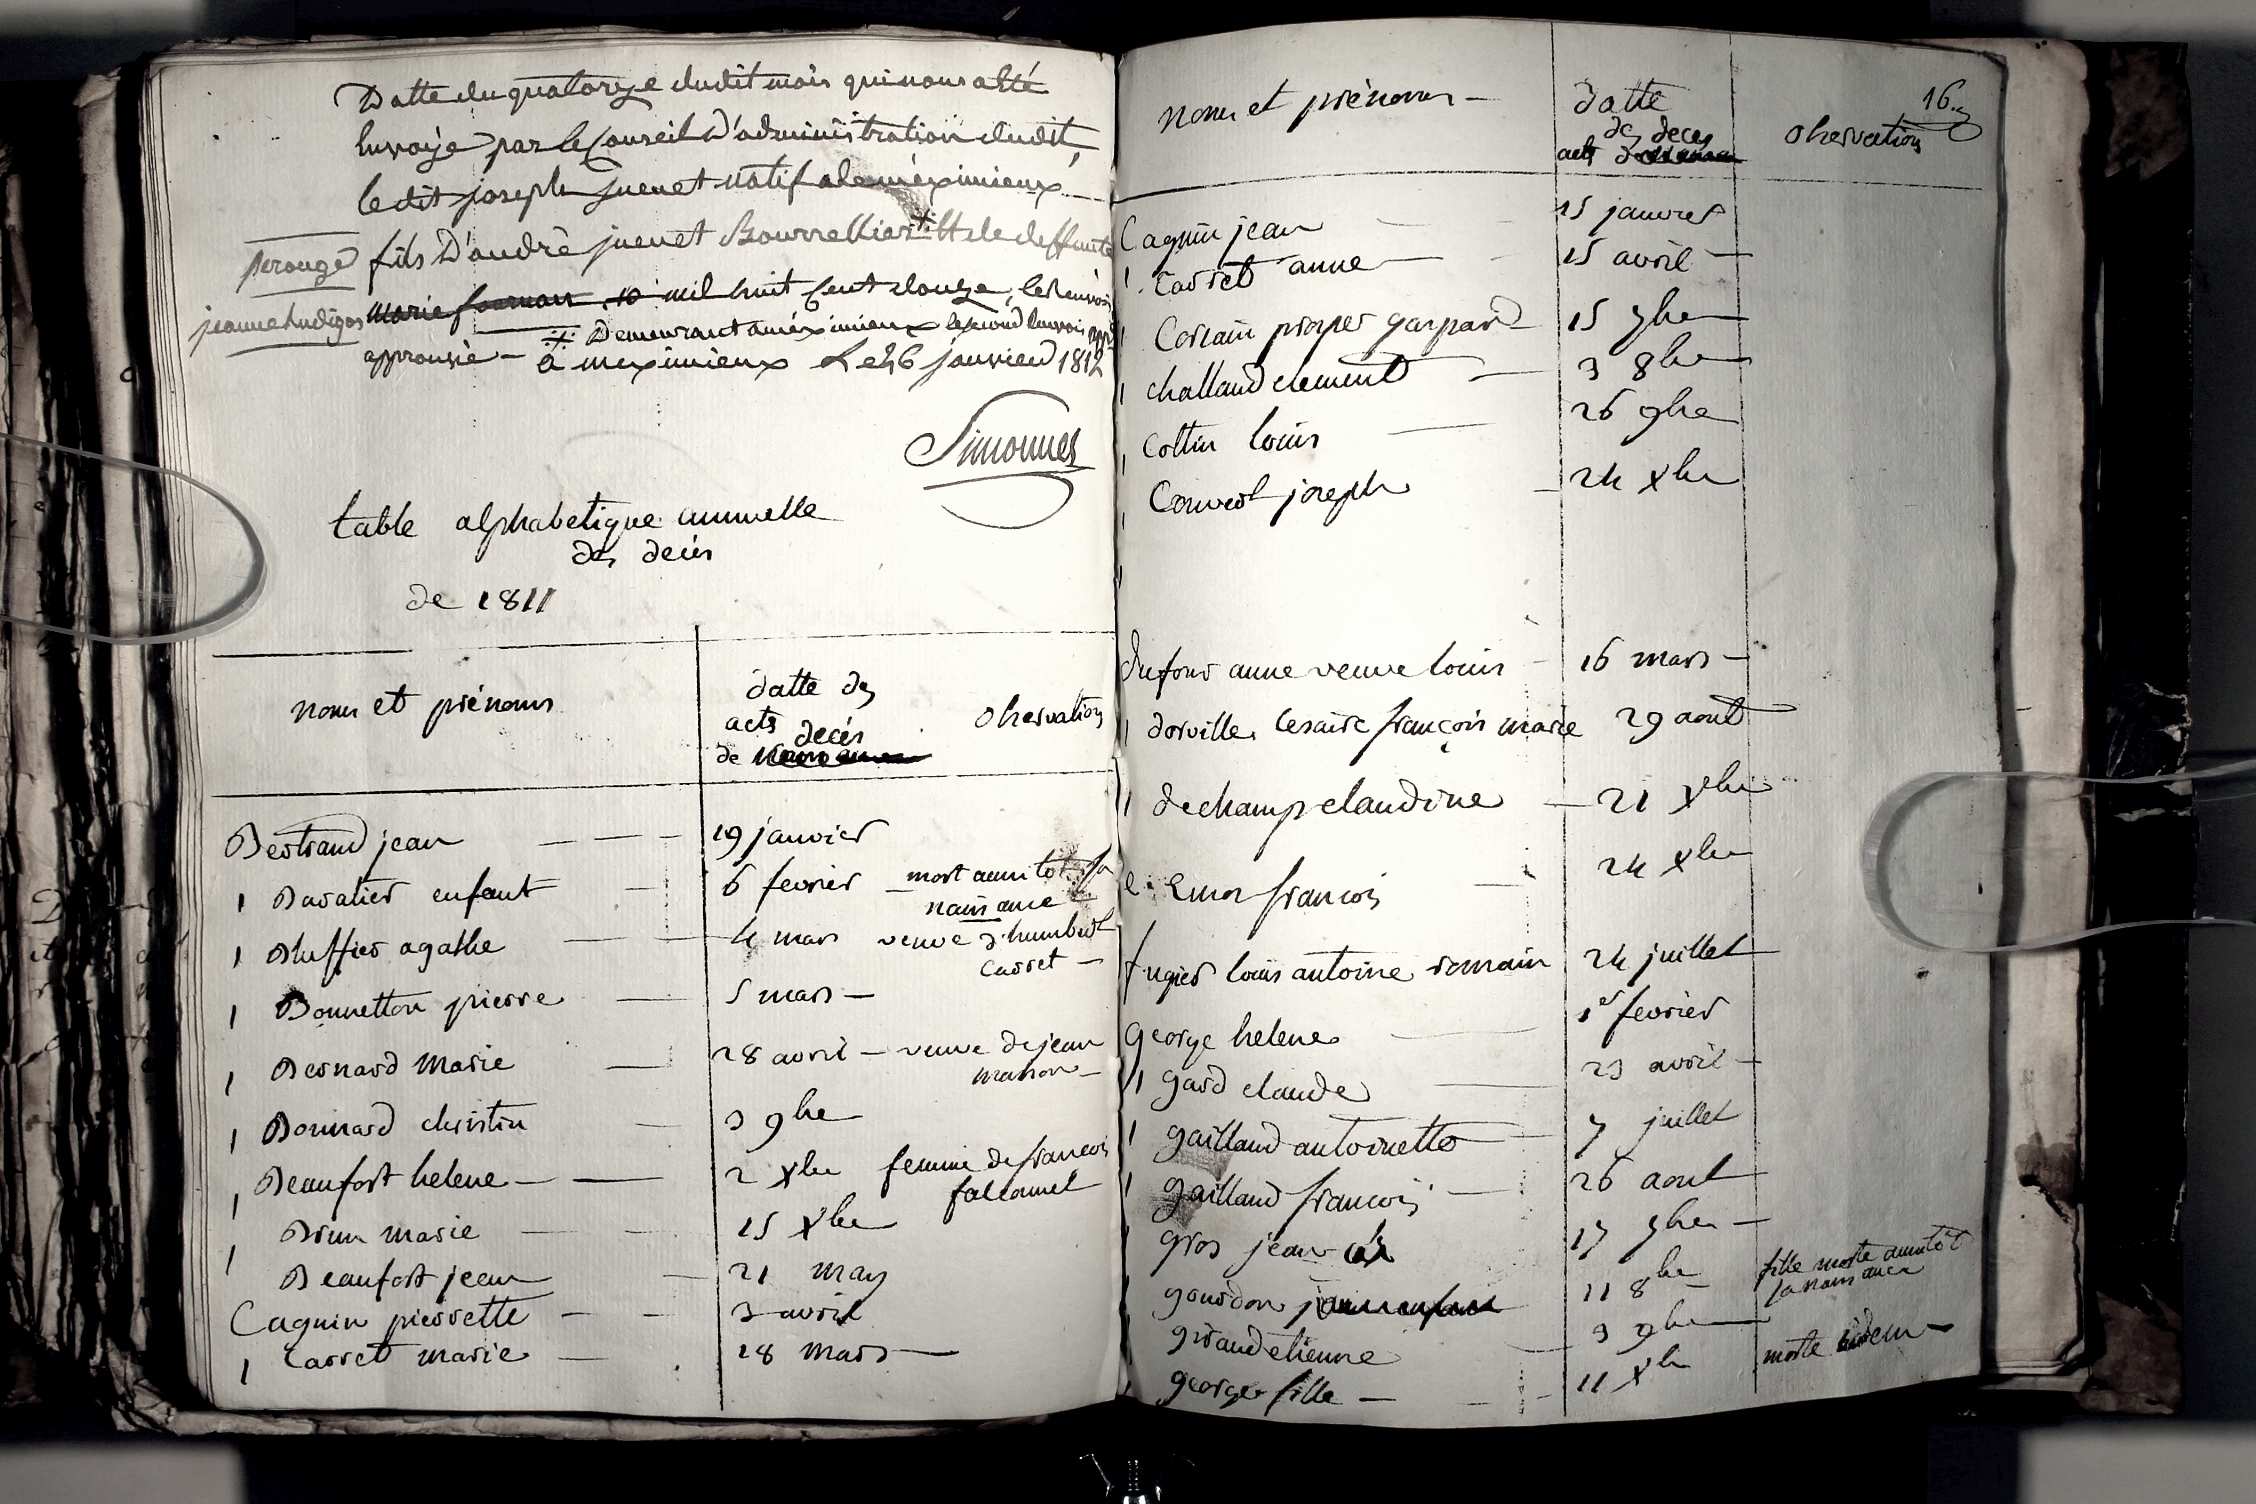 Datte du quatorze dudit mois qui nous a été
Envoÿé par le Conseil D'administration dudit,
le dit joseph juenet natif de meximieux
perouge fils D'andrè juenet Bourrellier et de deffunte
jeanne marie mil huit Cent douze, le Renvoi
Demeurant a méximieux le second Renvois
approuvé - à meximieux Le 26 janvier 1812
Simonnet
table alphabetique annuelle
des decès
de 1811
noms et prénoms
datte des
acts decès
de
observation
Bertrand jean 19 janvier
Bavatier enfant 6 fevrier mort aussitot sa
naissance
Bluffier agathe 4 mars veuve d'humbert
Carret
Bonnetton pierre 5 mars
Bernard marie 28 avril veuve de jean
masson
Bonnard christin 3 9bre
Beaufort helene 2 xbre femme de francois
falconnet
Brun marie 15 xbre
Beaufort jean 21 may
Caguin pierrette 3 avril
Carret marie 18 mars
16
noms et prénoms
datte
des deces
acts
observation
Caguin jean 15 janvier
Carret anne 15 avril
Corsain prosper gaspard 15 7bre
challand clement 3 8bre
Cottin louis 26 9bre
Convert joseph 24 xbre
dufour anne veuve louis 16 mars
dorville Cesaire françois marie 29 aout
dechamp claudine 21 xbre
francois 24 xbre
fugier louis antoine romain 24 juillet
george helene 1er fevrier
gard claude 23 avril
gailland antoinette 7 juillet
gailland francois 26 aout
gros jean 17 7bre
gourdon 11 8bre fille morte aussitôt
sa naissance
giraud etienne 3 9bre
george fille 11 xbre morte idem